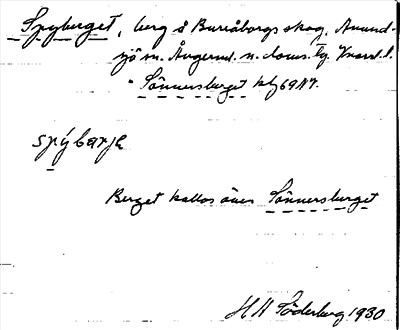 Spyberget, berg å Buriåborgs skog, Anund-
sjö m. Ångerml. n. doms. lg. Vnorrl. l.
= Sönnersberget kbl 69 A7.
spýbarje
Berget kallas även Sönnersberget
H H Söderberg 1930